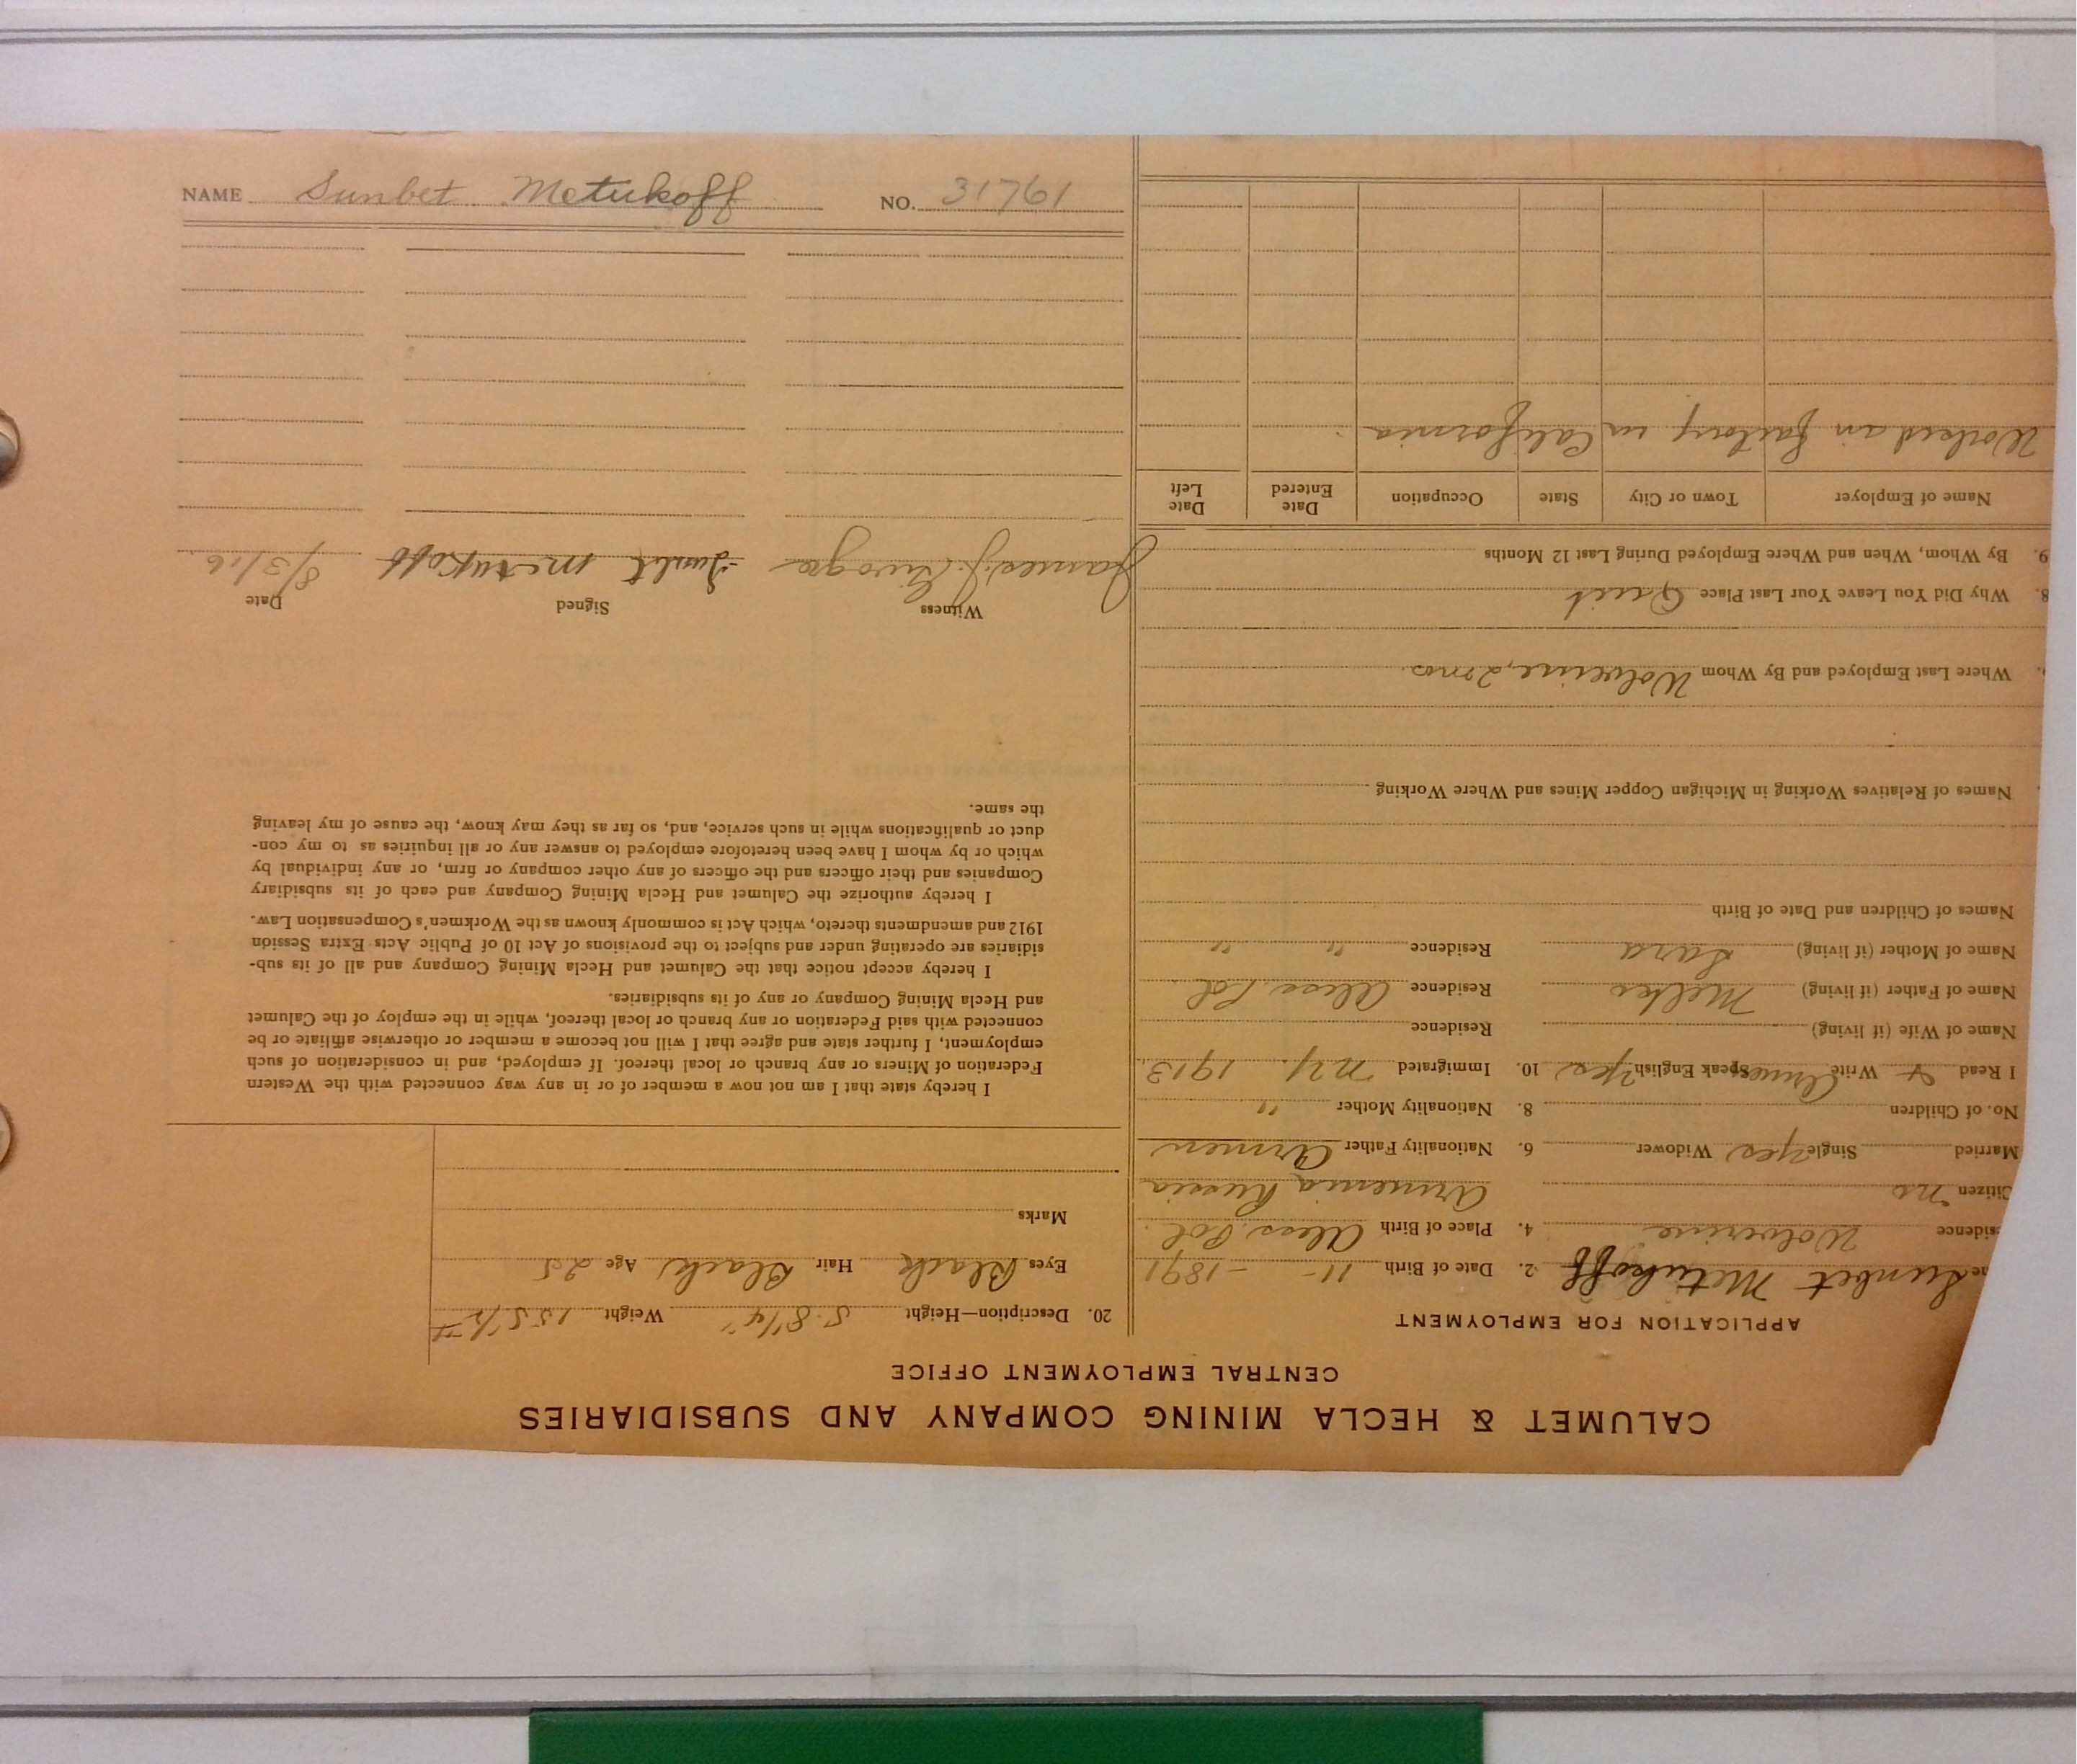 NAME Sunbet Metukoff NO. 31761
CALUMET & HECLA MINING COMPANY AND SUBSIDIARIES
CENTRAL EMPLOYMENT OFFICE
APPLICATION FOR EMPLOYMENT
me Sunbet Metukoff 2. Date of Birth 11 - - 1891
sidence Wolverine 4. Place of Birth Alex. Pol.
Citizen no Armenia Russia
Married Single yes Widower 6. Nationality Father Armen
No. of Children 8. Nationality Mother "
I Read & Write Armen Speak English yes 10. Immigrated N.Y. 1913
Name of Wife (if living) Residence
Name of Father (if living) Melko Residence Alex. Pol.
Name of Mother (if living) Sara Residence " "
Names of Children and Date of Birth
Names of Relatives Working in Michigan Copper Mines and Where Working
Where Last Employed and By Whom Wolverine, 2 mos.
8. Why Did You Leave Your Last Place Quit
9. By Whom, When and Where Employed During Last 12 Months
Name of Employer Town or City State Occupation Date Entered Date Left
Worked in factory in California
20. Description—Height 5-8 1/4" Weight 155 1/2 #
Eyes Black Hair Black Age 25
Marks
I hereby state that I am not now a member of or in any way connected with the Western
Federation of Miners or any branch or local thereof. If employed, and in consideration of such
employment, I further state and agree that I will not become a member or otherwise affiliate or be
connected with said Federation or any branch or local thereof, while in the employ of the Calumet
and Hecla Mining Company or any of its subsidiaries.
I hereby accept notice that the Calumet and Hecla Mining Company and all of its sub-
sidiaries are operating under and subject to the provisions of Act 10 of Public Acts Extra Session
1912 and amendments thereto, which Act is commonly known as the Workmen's Compensation Law.
I hereby authorize the Calumet and Hecla Mining Company and each of its subsidiary
Companies and their officers and the officers of any other company or firm, or any individual by
which or by whom I have been heretofore employed to answer any or all inquiries as to my con-
duct or qualifications while in such service, and, so far as they may know, the cause of my leaving
the same.
Witness Signed Date
James J. Sunbt Metukoff 8/3/16